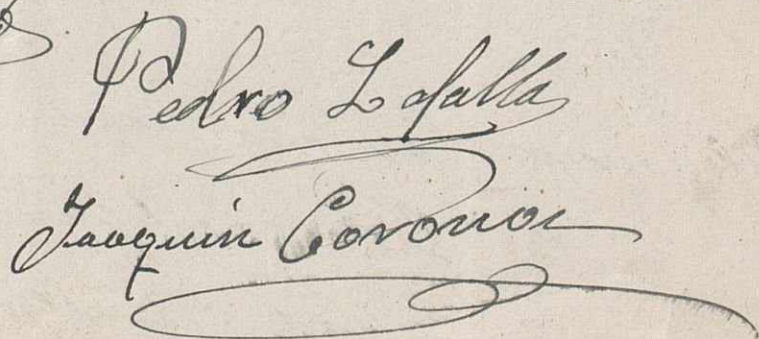 Pedro Lafalla
Joaquín Corona